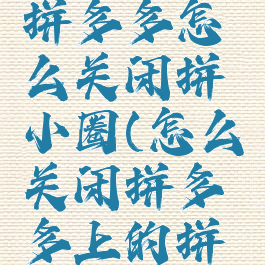 拼多多怎
么关闭拼
小圈(怎么
关闭拼多
多上的拼